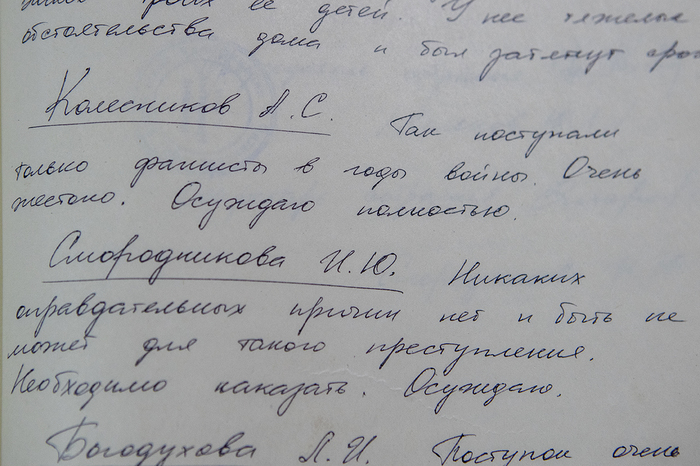 троих её детей. У неё тяжелые
обстоятельства дома и был затянут
Колесников А.С. Так поступали
только фашисты в годы войны. Очень
жестоко. Осуждаю полностью.
Смородникова И.Ю. Никаких
оправдательных причин нет и быть не
может для такого преступления.
Необходимо наказать. Осуждаю.
Богодухова Л.И. Поступок очень